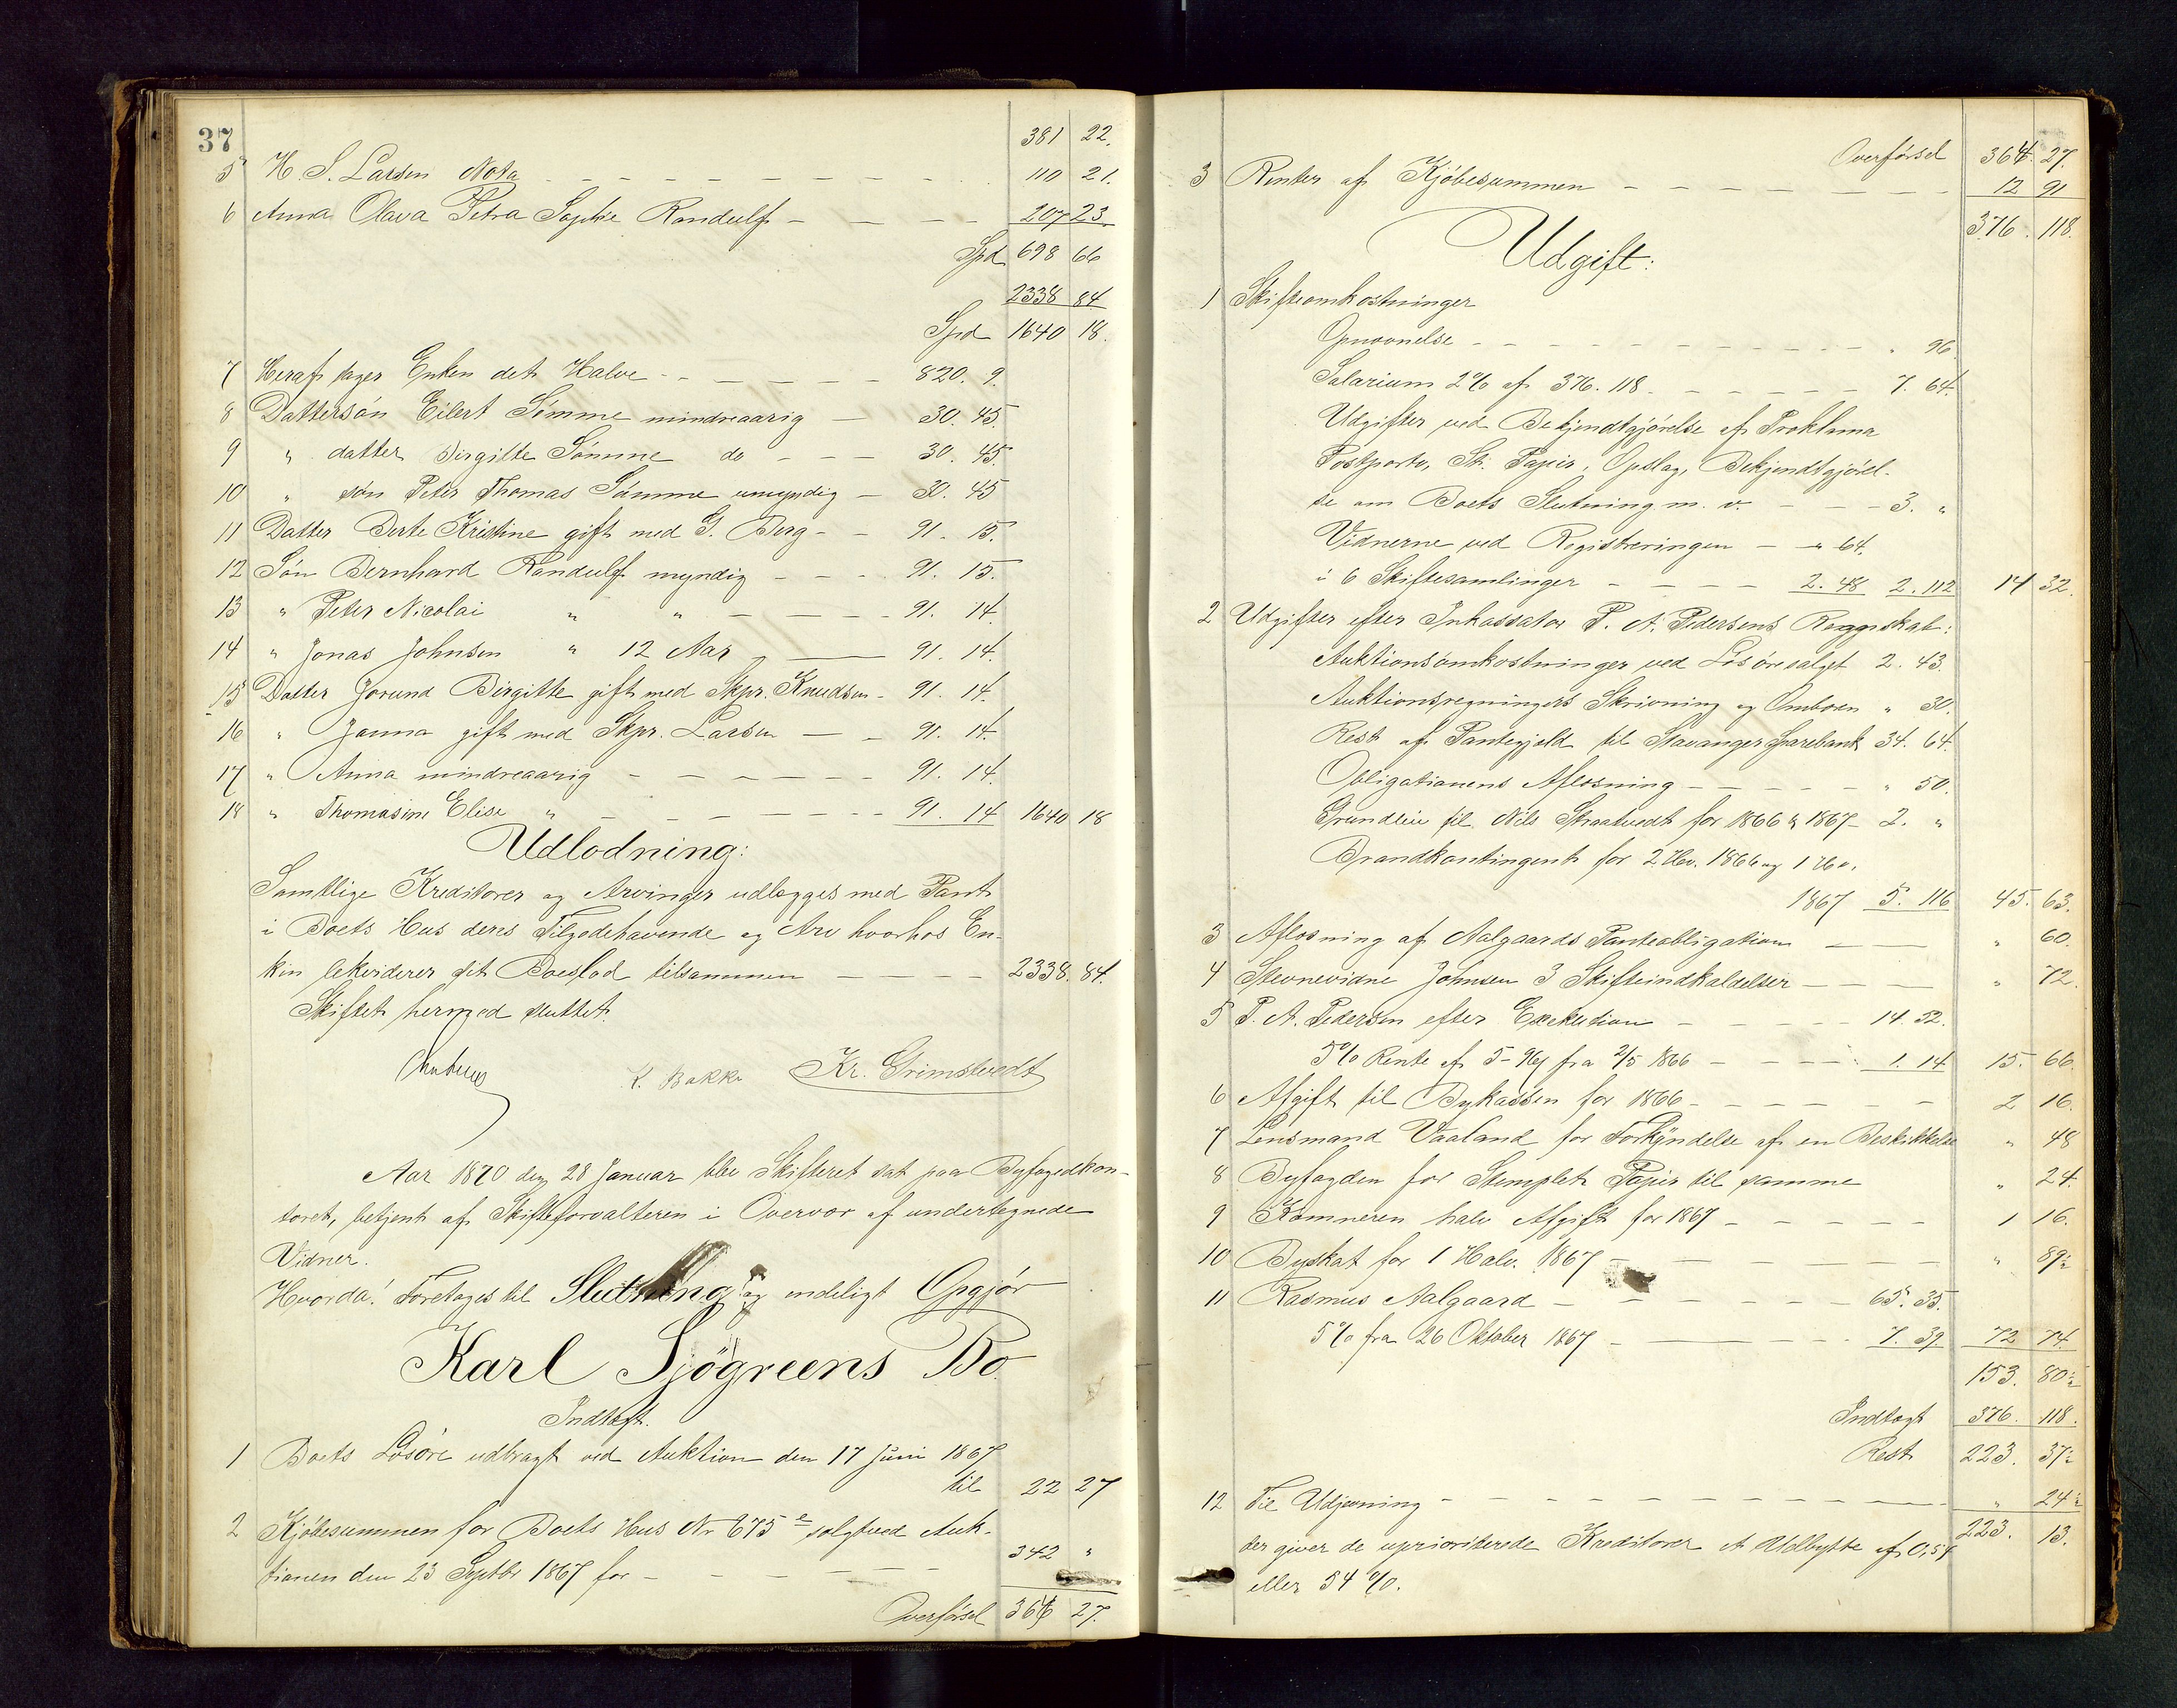 37
381 22.
5 H. S. Larsen Nota 110 21.
6 Anna Olava Petra Sophie Randulf 207 23
Spd 698 66
2338 84
Spd 1640 18.
7 Heraf tager Enken det Halve 820. 9.
8 Dattersøn Eilert Sømme mindreaarig 30. 45.
9 " datter Birgitte Sømme do 30. 45.
10 " søn Peter Thomas Sømme umyndig 30. 45
11 Datter Berte Kristine gift med G. Berg 91. 15.
12 Søn Bernhard Randulf myndig 91. 15.
13 " Peter Nicolai " " 91. 14.
14 " Jonas Johnsen " 12 Aar 91. 14.
15 Datter Jorund Birgitte gift med Skpr. Knudsen 91. 14.
16 " Janna gift med Skpr. Larsen 91. 14.
17 " Anna mindreaarig 91. 14.
18 " Thomasine Elise " 91. 14 1640 18
Udlodning:
Samtlige Kreditorer og Arvinger udlægges med Pant
i Boets Hus deres Tilgodehavende og Arv hvorhos En-
ken likviderer sit Boeslod tilsammen 2338. 84.
Skiftet hermed sluttet.
K. Bakke Kr. Grimstvedt
Aar 1870 den 28 Januar blev Skifteret sat paa Byfogedkon-
toret, betjent af Skifteforvalteren i Overvær af undertegnede
Vidner.
Hvorda! Foretages til Slutning og endeligt Opgjør
Karl Sjögreens Bo.
Indtægt.
1 Boets Løsøre udbragt ved Auktion den 17 Juni 1867
til 22 27
2 Kjøbesummen for Boets Hus Nr 675 e solgt ved Auk-
tionen den 23 Septbr 1867 for 342 "
Overførsel 364 27.
Overførsel 364. 27.
3 Renter af Kjøbesummen 12 91
376. 118.
Udgift:
1 Skifteomkostninger
Opnævnelse " 96.
Salarium 2% af 376. 118 7. 64.
Udgifter ved Bekjendtgjørelse af Proklama
Postporto, St. Papir, Opslag, Bekjendtgjørel-
se om Boets Slutning m. v. 3. "
Vidnerne ved Registreringen " 64.
i 6 Skiftesamlinger 2. 48 2. 112 14 32.
2 Udgifter efter Inkassator P. A. Pedersens Regnskab:
Auktionsomkostninger ved Løsøresalget 2. 43.
Auktionsregningers Skrivning og Ombæren " 30.
Rest af Pantegjæld til Stavanger Sparebank 34. 64.
Obligationens Afløsning " 50.
Grundleie til Nils Straatvedt for 1866 & 1867 2. "
Brandkontingent for 2 Hv. 1866 og 1 Hv.
1867 5. 116 45. 63.
3 Afløsning af Aalgaards Panteobligation " 60.
4 Stevnevidne Johnsen 3 Skifteindkaldelser " 72.
5 P. A. Pedersen efter Exekution 14. 52.
5% Rente af 5- 96 fra 2/5 1866 1. 14 15. 66.
6 Afgift til Bykassen for 1866 2 16.
7 Lensmand Vaaland for Forkyndelse af en Beskikkelse " 48
8 Byfogden for Stemplet Papir til samme " 24.
9 Kæmneren halv Afgift for 1867 1 16.
10 Byskat for 1 Halv. 1867 " 89½
11 Rasmus Aalgaard 65. 35.
5% fra 26 Oktober 1867 7. 39 72 74.
153. 80½
Indtægt 376. 118.
Rest 223. 37½
12 Til Udjevning " 24½
223. 13.
der giver de uprioriterede Kreditorer et Udbytte af 0,54
eller 54 %.